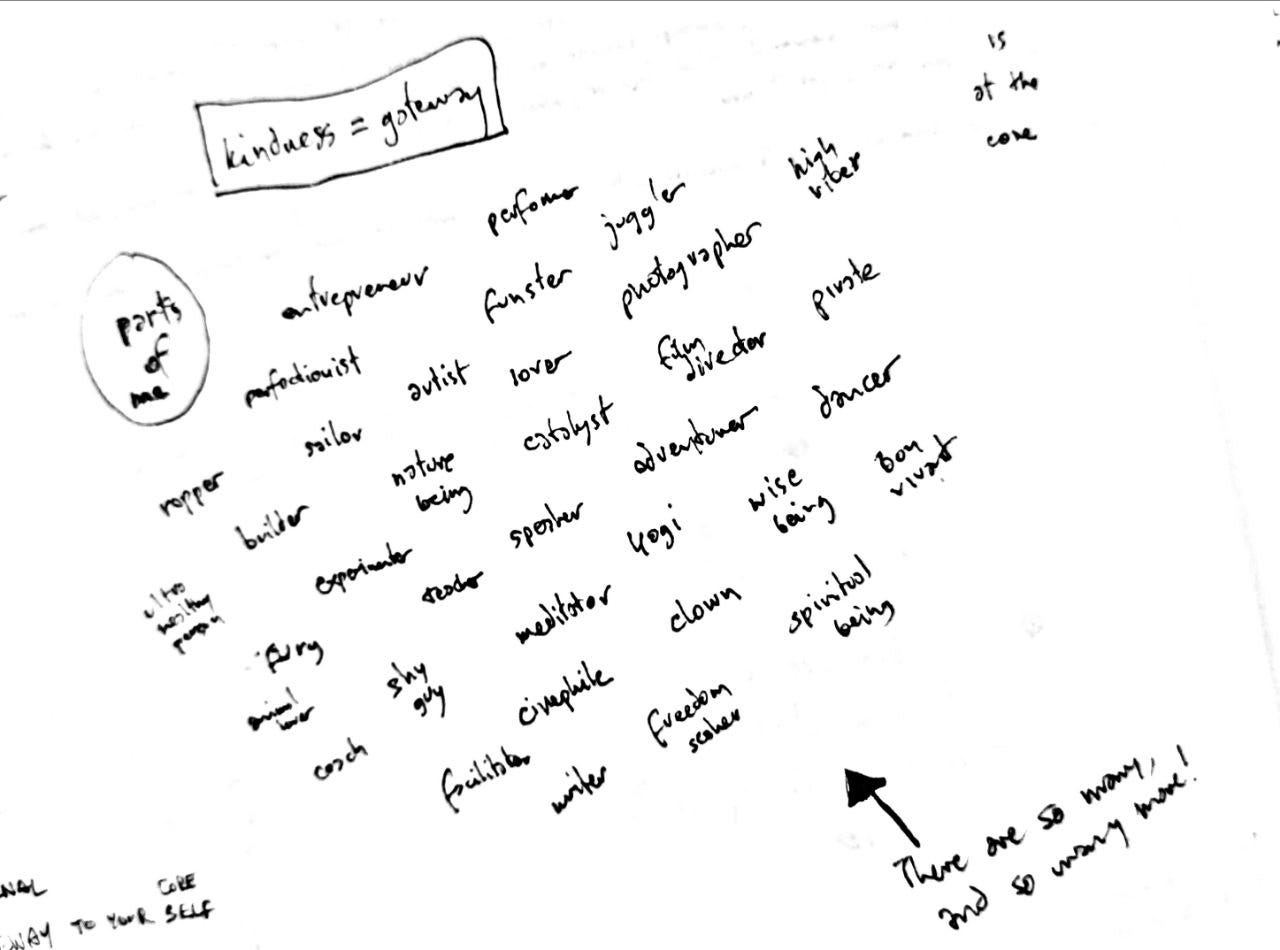 is
at the
core
kindness = gateway
parts
of
me
performer
juggler
high
viber
entrepreneur
funster
photographer
pirate
perfectionist
artist
lover
film
director
dancer
rapper
sailor
nature
being
catalyst
adventurer
bon
vivant
builder
experimenter
speaker
yogi
wise
being
ultra
person
furry
teacher
meditator
clown
spiritual
being
animal
lover
shy
guy
cinephile
freedom
seeker
coach
facilitator
writer
There are so many,
and so many more!
CORE
WAY TO YOUR SELF